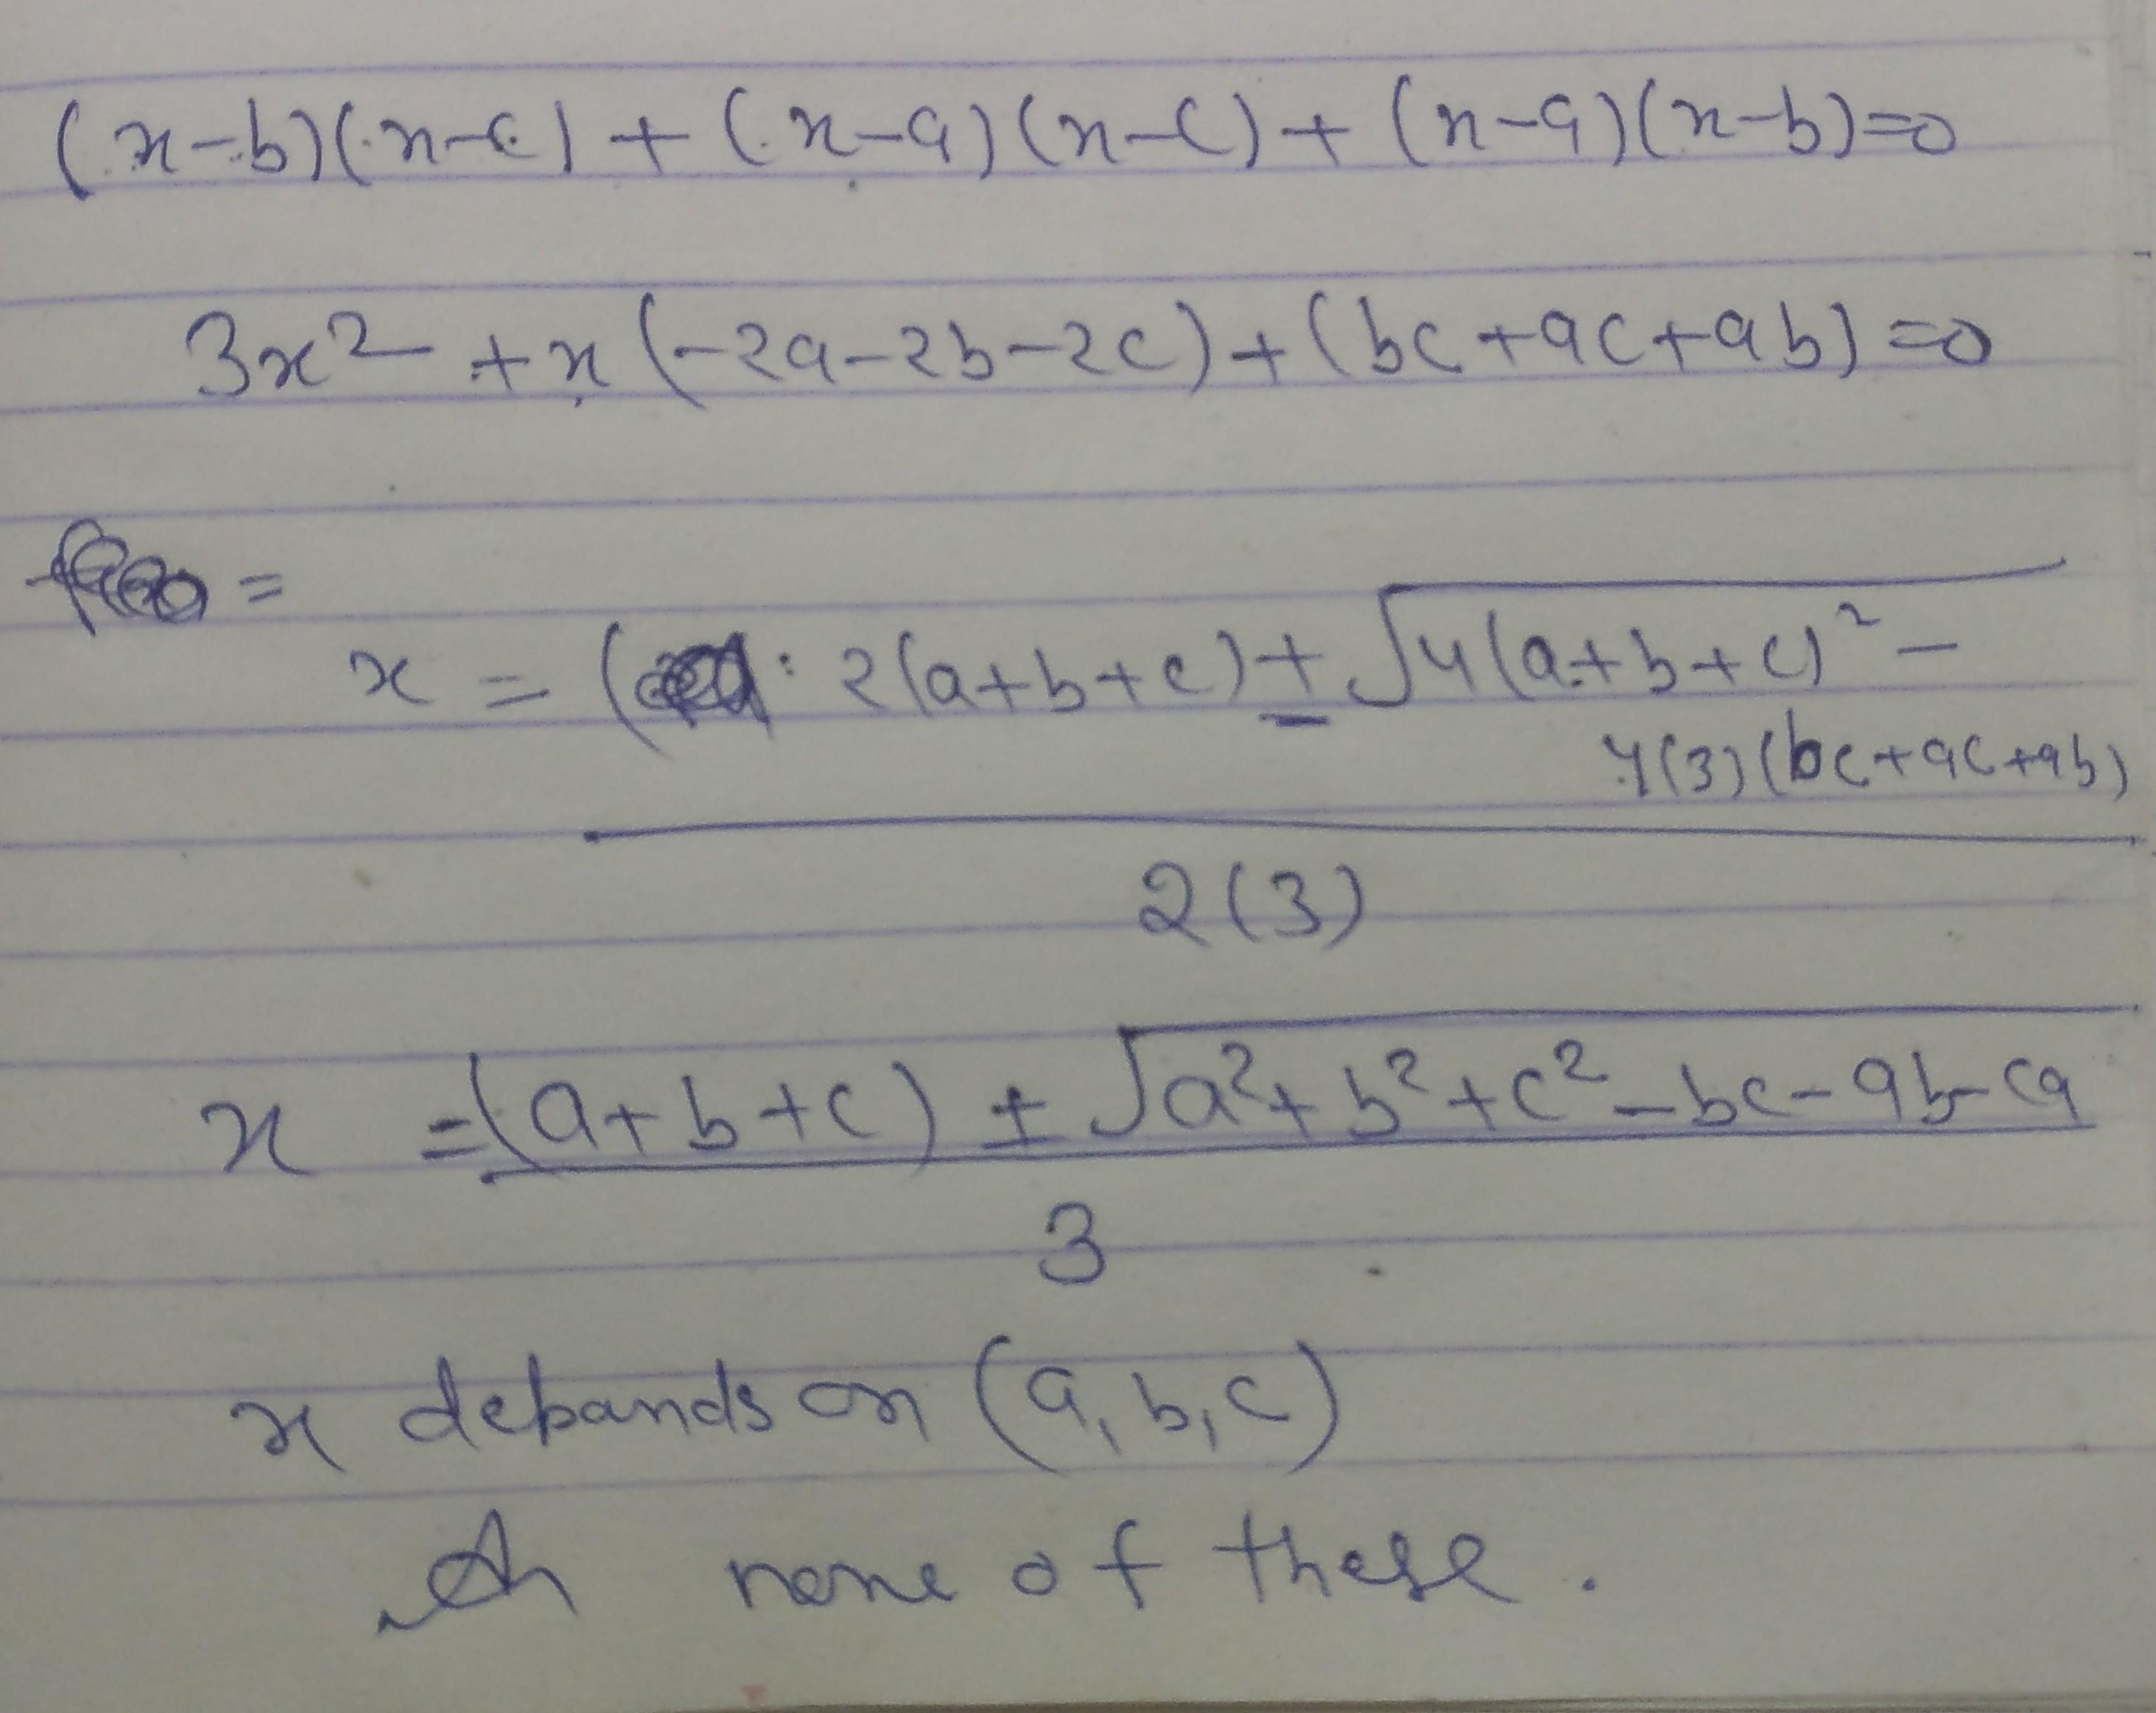 (x-b)(x-c) + (x-a)(x-c) + (x-a)(x-b)=0
3x² + x(-2a-2b-2c) + (bc+ac+ab)=0
=
x = (2(a+b+c) ± √4(a+b+c)² -
4(3)(bc+ac+ab)
2(3)
x = (a+b+c) ± √a²+b²+c²-bc-ab-ca
3
x debands on (a, b, c)
none of these.